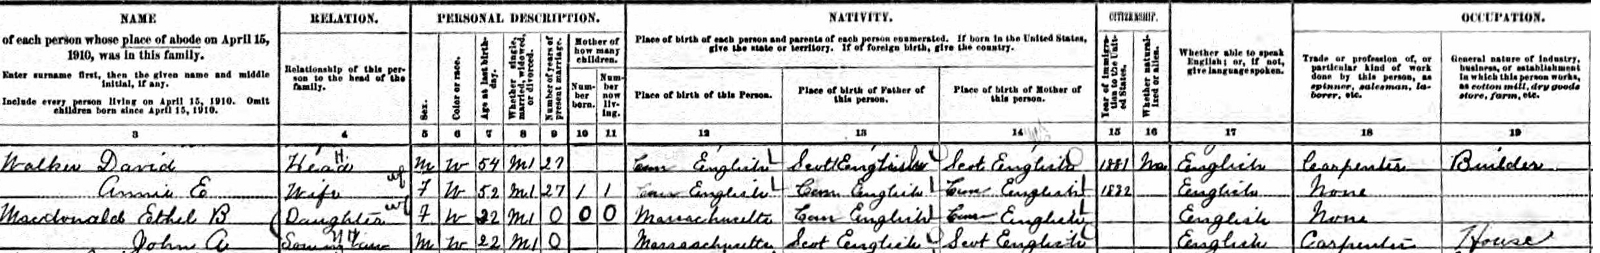 NAME RELATION. PERSONAL DESCRIPTION. NATIVITY. CITIZENSHIP. OCCUPATION.
of each person whose place of abode on April 15, 1910, was in this family.
Enter surname first, then the given name and middle initial, if any.
Include every person living on April 15, 1910. Omit children born since April 15, 1910.
Relationship of this person to the head of the family.
Sex.
Color or race.
Age at last birthday.
Whether single, married, widowed, or divorced.
Number of years of present marriage.
Mother of how many children.
Number born.
Number now living.
Place of birth of each person and parents of each person enumerated. If born in the United States, give the state or territory. If of foreign birth, give the country.
Place of birth of this Person.
Place of birth of Father of this person.
Place of birth of Mother of this person.
Year of immigration to the United States.
Whether naturalized or alien.
Whether able to speak English; or, if not, give language spoken.
Trade or profession of, or particular kind of work done by this person, as spinner, salesman, laborer, etc.
General nature of industry, business, or establishment in which this person works, as cotton mill, dry goods store, farm, etc.
3 4 5 6 7 8 9 10 11 12 13 14 15 16 17 18 19
Walker David Head M W 54 M1 27 Can English Scot English Scot English 1881 Na English Carpenter Builder
Annie E Wife F W 52 M1 27 1 1 Can English Can English Can English 1882 English None
Macdonald Ethel B Daughter F W 22 M1 0 0 0 Massachusetts Can English Can English English None
John A Son in law M W 22 M1 0 Massachusetts Scot English Scot English English Carpenter House